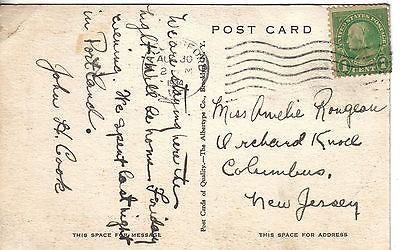 POST CARD
AUG 30
UNITED STATES POSTAGE
1 CENT 1
We are staying here to-
night & will be home Friday
evening. We spent last night
in Portland.
John H. Cook
Post Cards of Quality.—The Albertype Co., Brooklyn, N. Y.
Miss Amelie Rougeau
Orchard Knoll
Columbus,
New Jersey
THIS SPACE FOR MESSAGE
THIS SPACE FOR ADDRESS